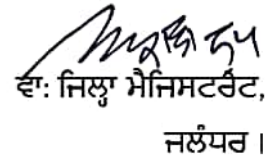 ਵਾ: ਜਿਲ੍ਹਾ ਮੈਜਿਸਟਰੇਟ,
ਜਲੰਧਰ।